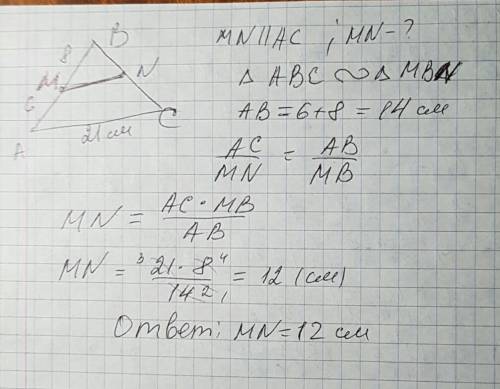 B
8
M
N
6
A
21 см
C
MN||AC ; MN-?
△ ABC ∾ △ MBN
AB = 6+8 = 14 см
AC/MN = AB/MB
MN = AC · MB / AB
MN = ³21 · 8⁴ / 14 2 ₁ = 12 (см)
Ответ: MN = 12 см